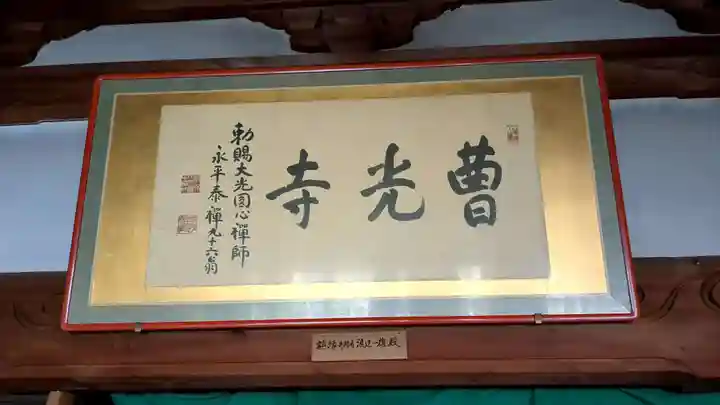 曹光寺
勅賜大光圓心禪師
永平泰禪九十六翁